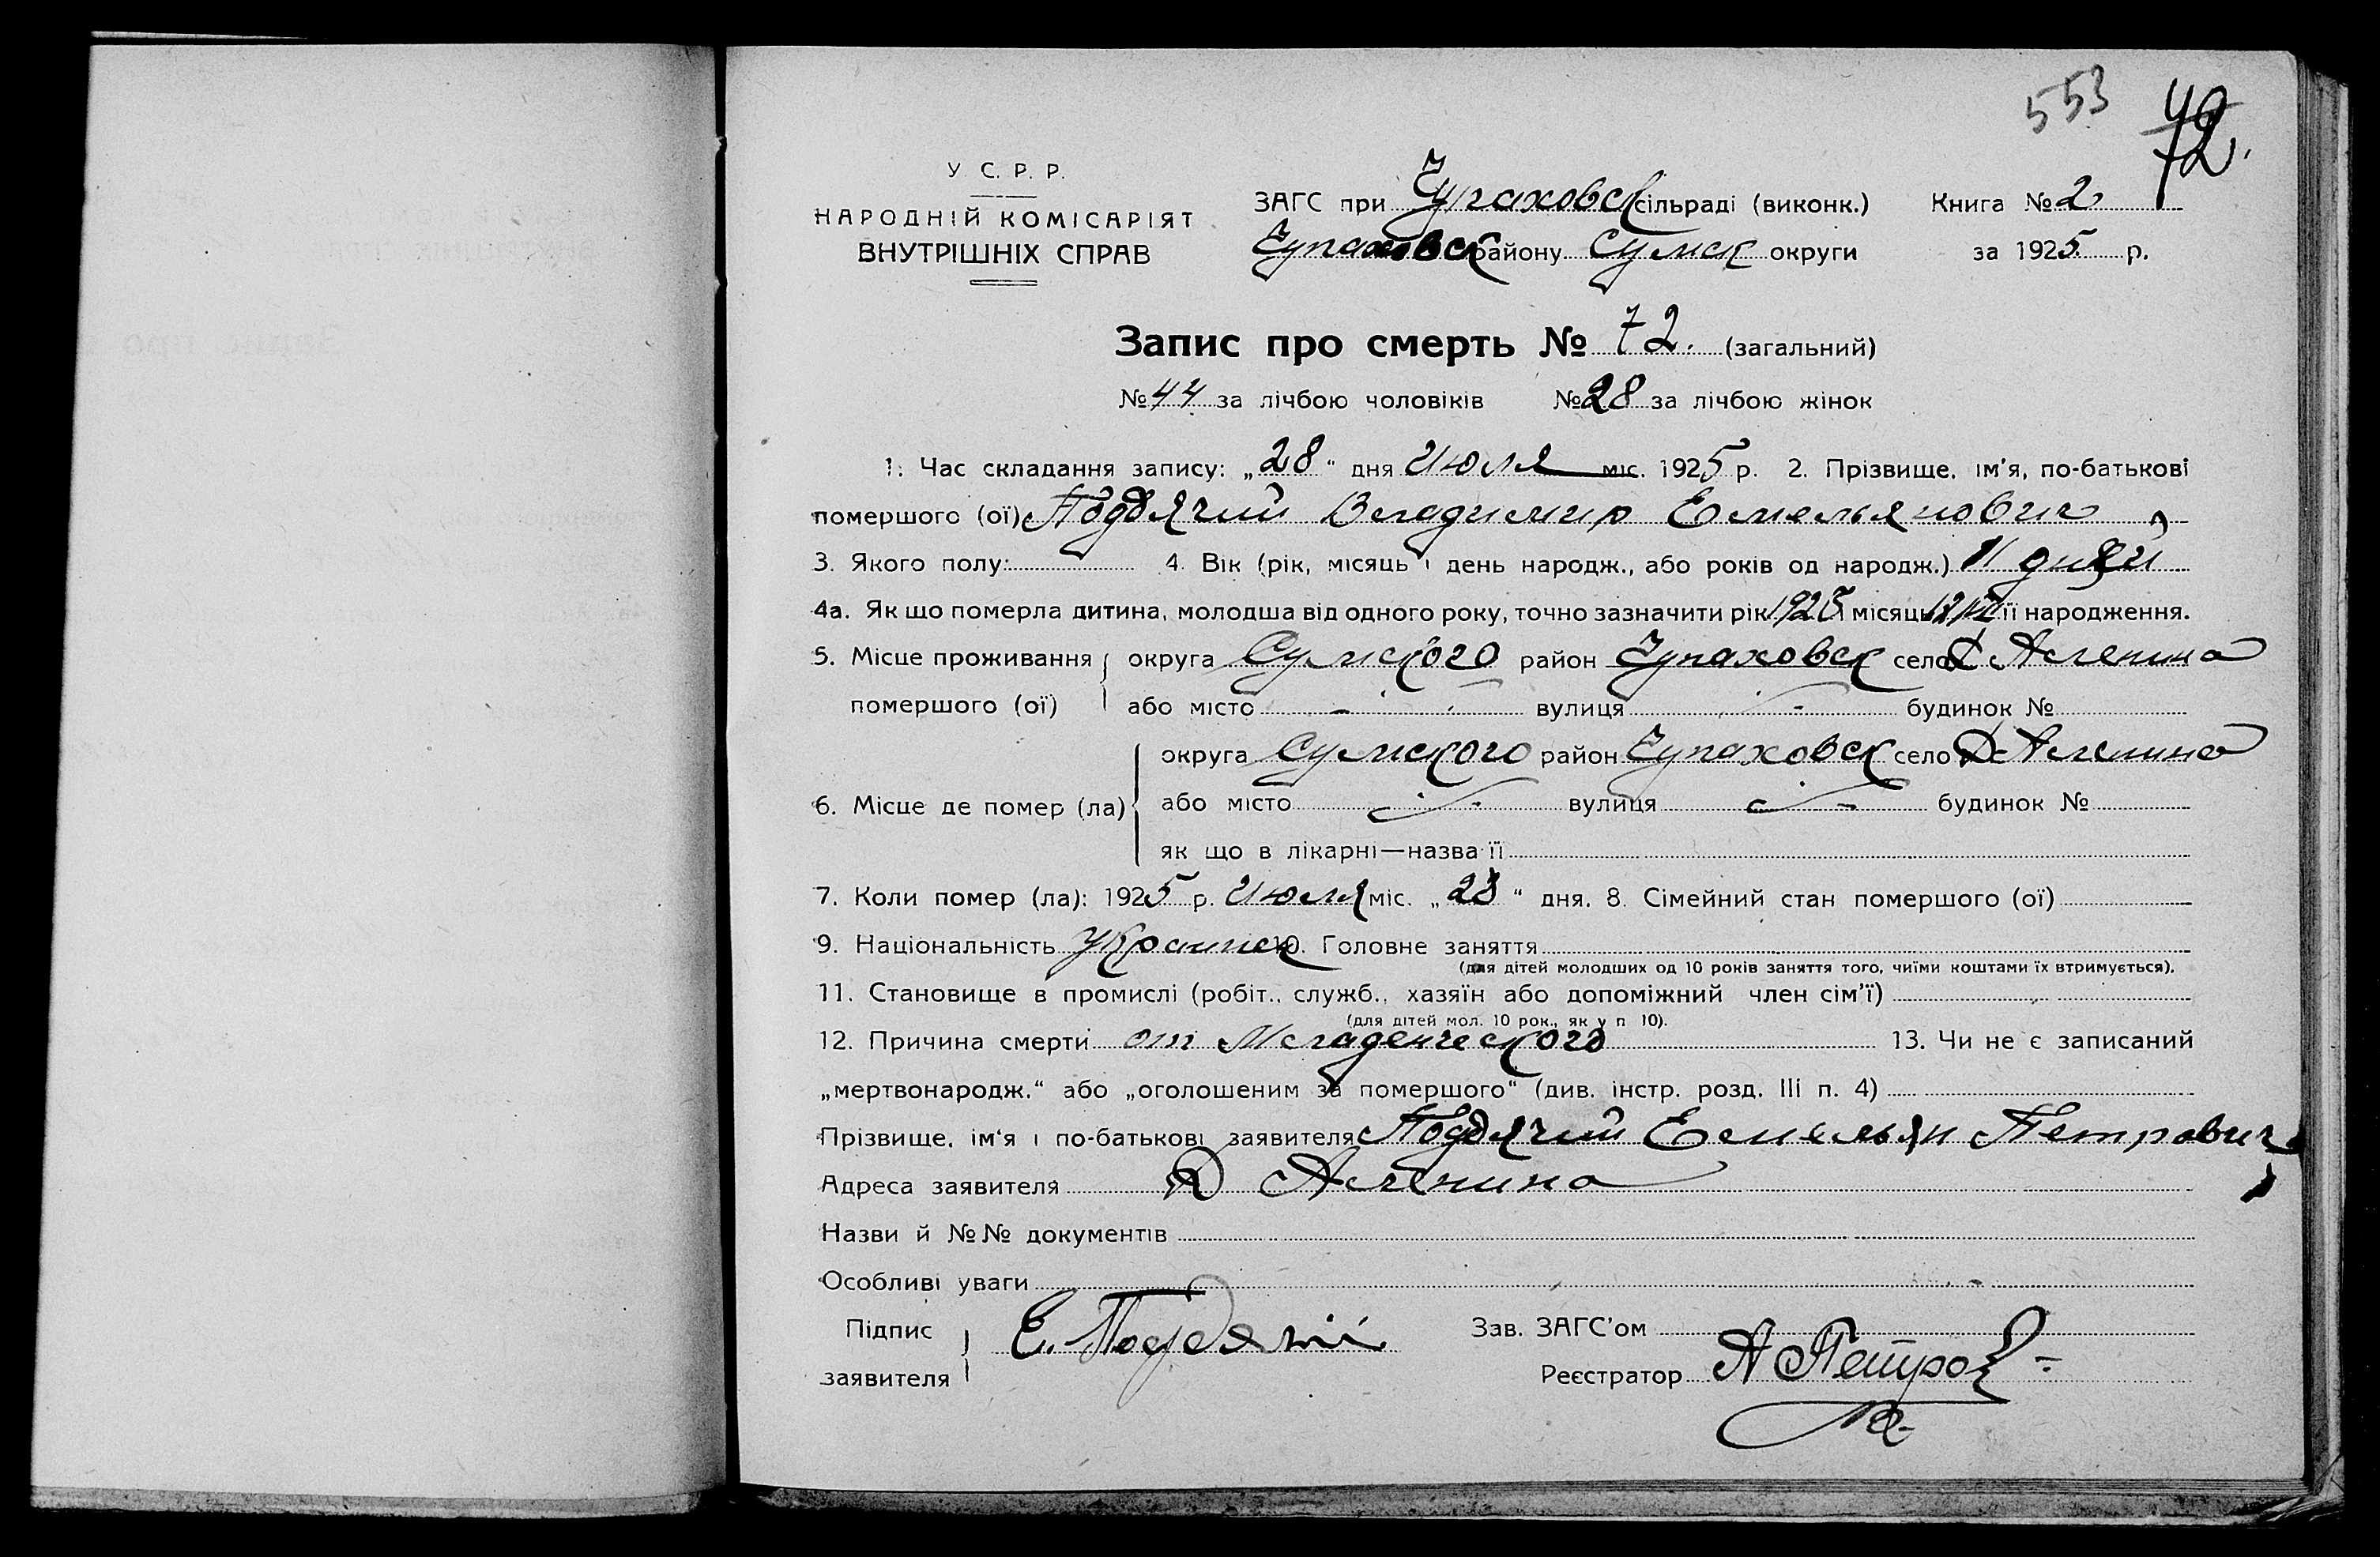 553
72.
У С. Р. Р.
НАРОДНІЙ КОМІСАРІЯТ
ВНУТРІШНІХ СПРАВ
ЗАГС при Чупаховск сільраді (виконк.) Книга № 2
Чупаховск району Сумск округи за 1925 р.
Запис про смерть № 72. (загальний)
№ 44 за лічбою чоловіків № 28 за лічбою жінок
1. Час складання запису: „28“ дня Июля міс. 1925 р. 2. Прізвище, ім’я, по-батькові
помершого (ої) Поддячий Владимир Емельянович
3. Якого полу: 4. Вік (рік, місяць і день народж., або років од народж.) 11 дней
4а. Як що померла дитина, молодша від одного року, точно зазначити рік 1925 місяць її народження.
5. Місце проживання округа Сумского район Чупаховск село
помершого (ої) або місто вулиця будинок №
округа Сумского район Чупаховск село
6. Місце де помер (ла) або місто вулиця будинок №
як що в лікарні—назва її
7. Коли помер (ла): 1925 р. Июля міс. „23“ дня. 8. Сімейний стан помершого (ої)
9. Національність Украинец 10. Головне заняття
(для дітей молодших од 10 років заняття того, чиїми коштами їх втримується).
11. Становище в промислі (робіт., служб., хазяїн або допоміжний член сім’ї)
(для дітей мол. 10 рок., як у п 10).
12. Причина смерти от Младенческого 13. Чи не є записаний
„мертвонародж.“ або „оголошеним за помершого“ (див. інстр. розд. III п. 4)
Прізвище, ім‘я і по-батькові заявителя Поддячий Емельян Петрович
Адреса заявителя
Назви й №№ документів
Особливі уваги
Підпис Е. Поддячій Зав. ЗАГС’ом
заявителя Реєстратор А Петров